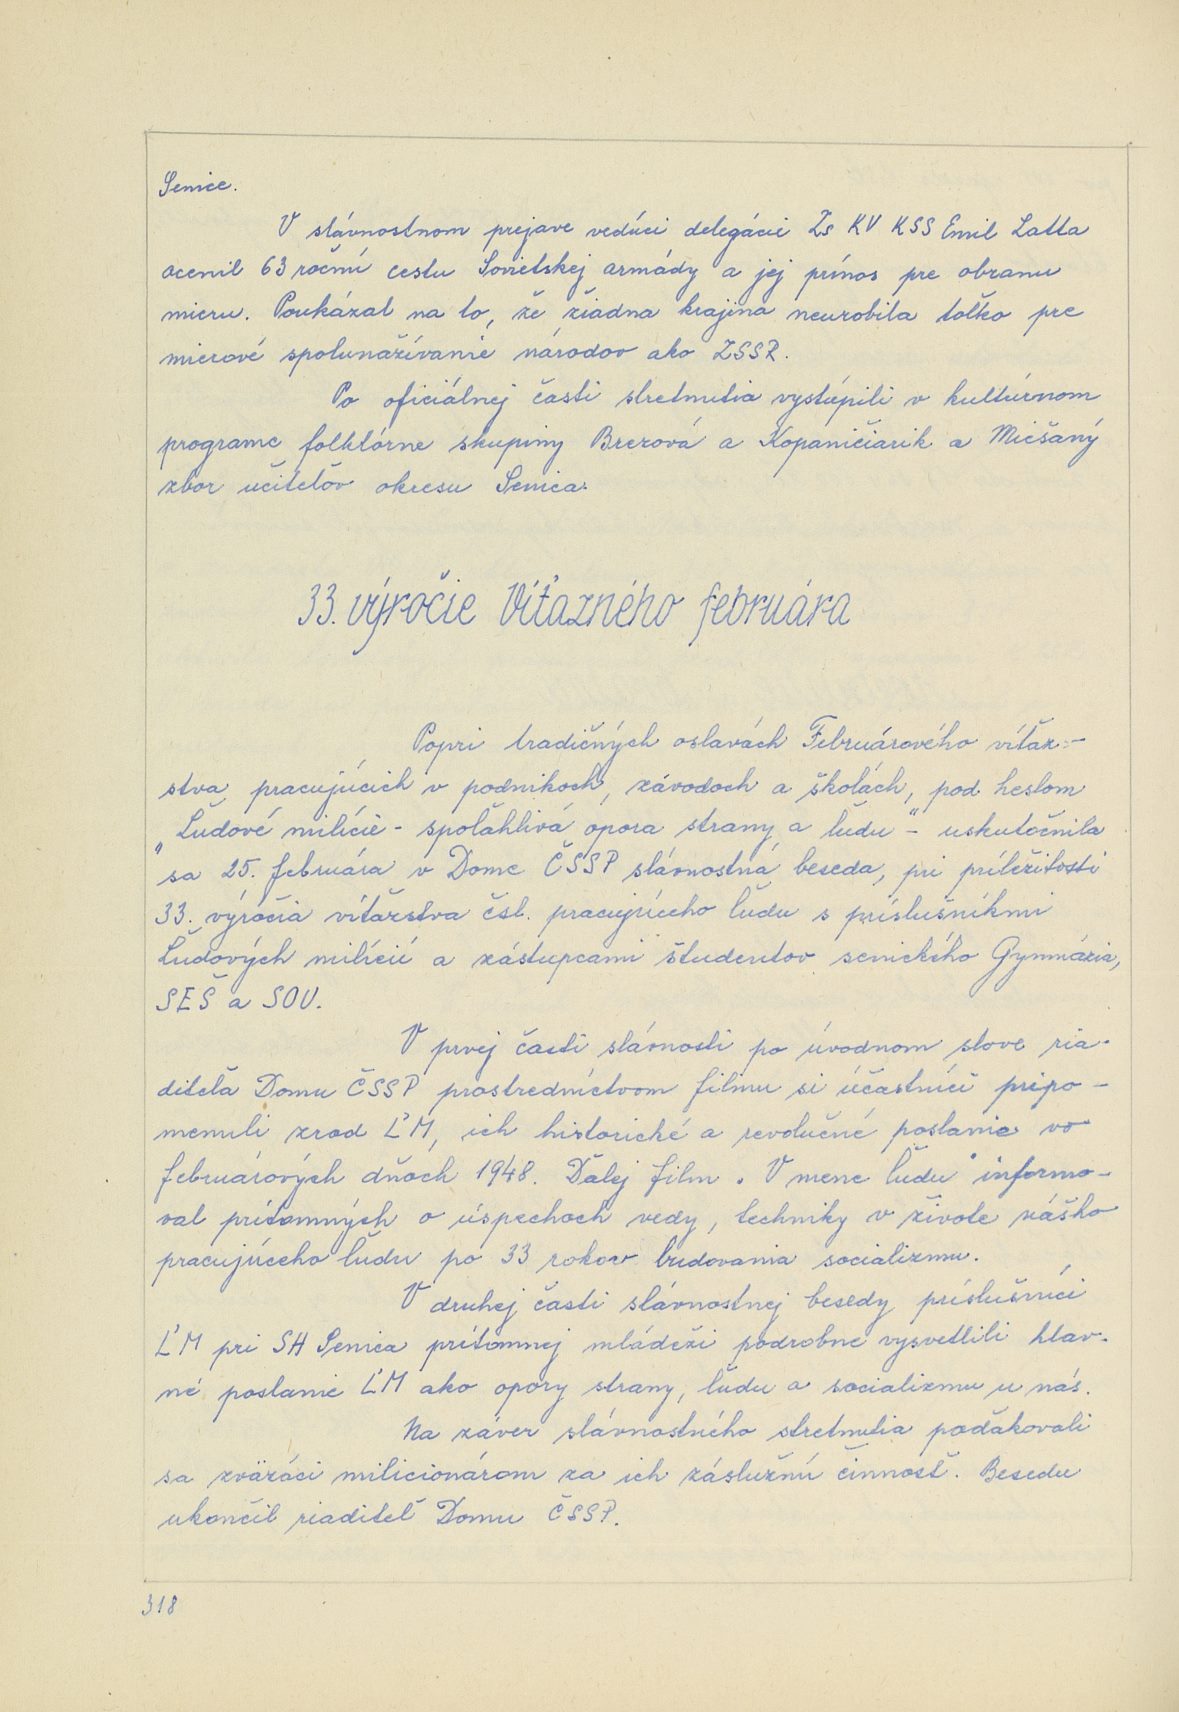 Senice.
V slávnostnom prejave vedúci delegácie Zs KV KSS Emil Latta
ocenil 63 ročnú cestu Sovietskej armády a jej prínos pre obranu
mieru. Poukázal na to, že žiadna krajina neurobila toľko pre
mierové spolunažívanie národov ako ZSSR.
Po oficiálnej časti stretnutia vystúpili v kultúrnom
programe folklórne skupiny Brezová a Kopaničiarik a Miešaný
zbor učiteľov okresu Senica.
33. výročie Víťazného februára
Popri tradičných oslavách Februárového víťaz-
stva pracujúcich v podnikoch, závodoch a školách, pod heslom
„Ľudové milície - spoľahlivá opora strany a ľudu" - uskutočnila
sa 25. februára v Dome ČSSP slávnostná beseda, pri príležitosti
33. výročia víťazstva čsl. pracujúceho ľudu s príslušníkmi
Ľudových milícií a zástupcami študentov senického Gymnázia,
SEŠ a SOU.
V prvej časti slávnosti po úvodnom slove ria-
diteľa Domu ČSSP prostredníctvom filmu si účastníci pripo-
menuli zrod ĽM, ich historické a revolučné poslanie vo
februárových dňoch 1948. Ďalej film „V mene ľudu" informo-
val prítomných o úspechoch vedy, techniky v živote nášho
pracujúceho ľudu po 33 rokov budovania socializmu.
V druhej časti slávnostnej besedy príslušníci
ĽM pri SH Senica prítomnej mládeži podrobne vysvetlili hlav-
né poslanie ĽM ako opory strany, ľudu a socializmu u nás.
Na záver slávnostného stretnutia poďakovali
sa zväzáci milicionárom za ich záslužnú činnosť. Besedu
ukončil riaditeľ Domu ČSSP.
318